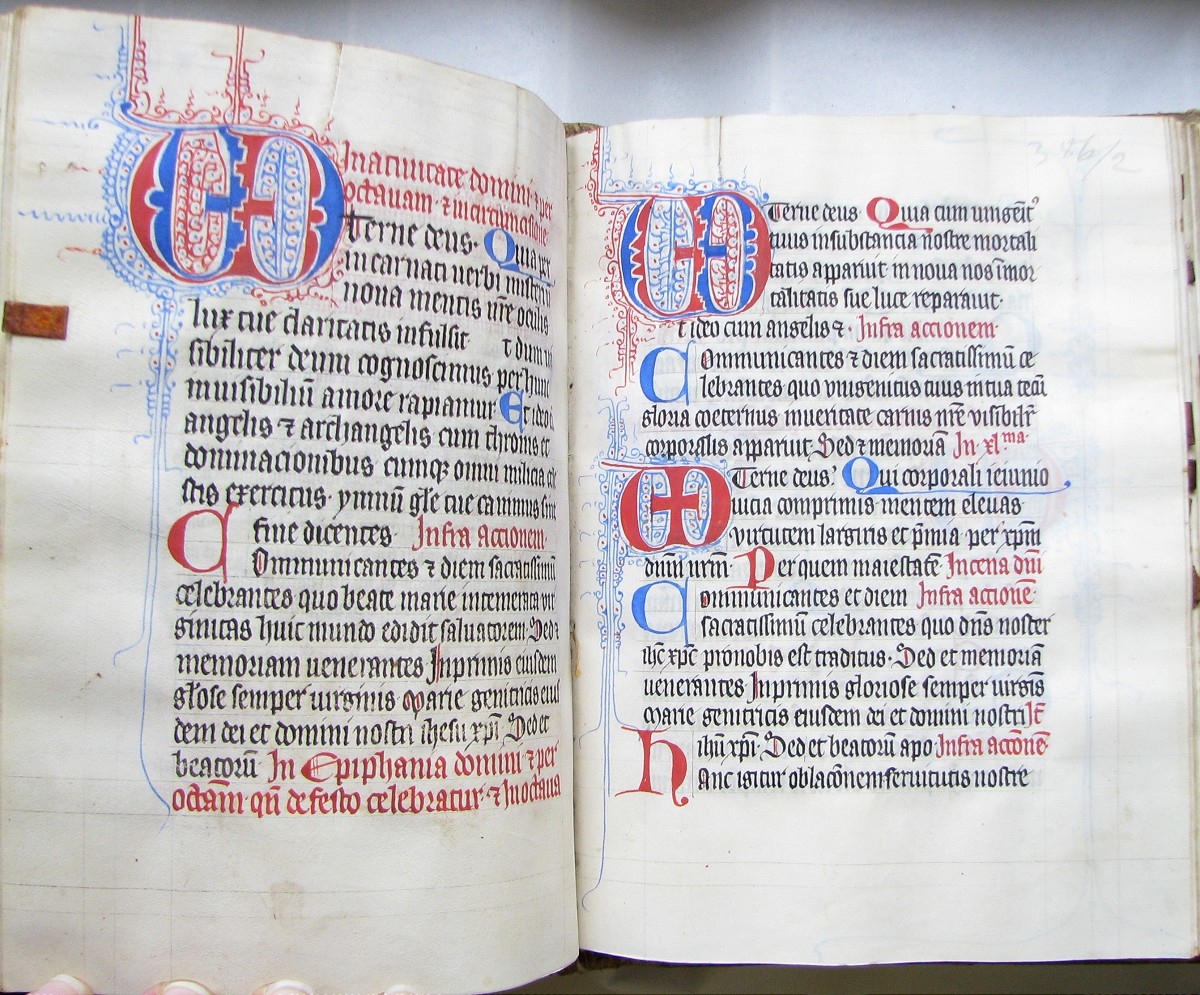 In nativitate domini ⁊ per
octavam · ⁊ in circumcisione
Eterne deus · Quia per
incarnati verbi misteriu
nova mentis nr̄e oculis
lux tue claritatis infulsit
t dum vi
sibiliter deum cognoscimus per hunc
invisibiliū amore rapiamur Et ideo cū
angelis ⁊ archangelis cum thronis et
dominacionibus cumqz omni milicia cele
stis exercitus · ymnū gl̄e tue canimus sine
fine dicentes · Infra accionem ·
Communicantes ⁊ diem sacratissimū
celebrantes quo beate marie intemerata vir
ginitas huic mundo edidit salvatorem · Sed ⁊
memoriam venerantes Inprimis eiusdem
gl̄ose semper virginis Marie genitricis eius
dem dei et domini nostri ihesu xp̄i Sed et
beatorū In Epiphania domini ⁊ per
octāṁ qn̄ de festo celebratur · ⁊ In octava
Eterne deus · Quia cum unigenit⁹
tuus in substancia nostre mortali
tatis apparuit in nova nos īmor
talitatis sue luce reparavit ·
t ideo cum angelis ⁊ · Infra accionem ·
Communicantes ⁊ diem sacratissimū ce
lebrantes quo unigenitus tuus in tua tecū
gloria coeternus in veritate carnis nr̄e visibilit̄
corporalis apparuit · Sed ⁊ memoriā In · xl ᵐᵃ ·
Eterne deus · Qui corporali ieiunio
vicia comprimis mentem elevas
virtutem largiris et p̄mia · per xp̄m
dūm nr̄m · Per quem maiestatē Incena dn̄i
Communicantes et diem Infra accionē ·
sacratissimū celebrantes quo dn̄s noster
ih̄c xp̄c pro nobis est traditus · Sed et memoriā
venerantes Inprimis gloriose semper virgīs
Marie genitricis eiusdem dei et domini nostri
ihū xp̄i · Sed et beatorū apo · Infra accōnē ·
Hanc igitur oblacōnem servitutis nostre